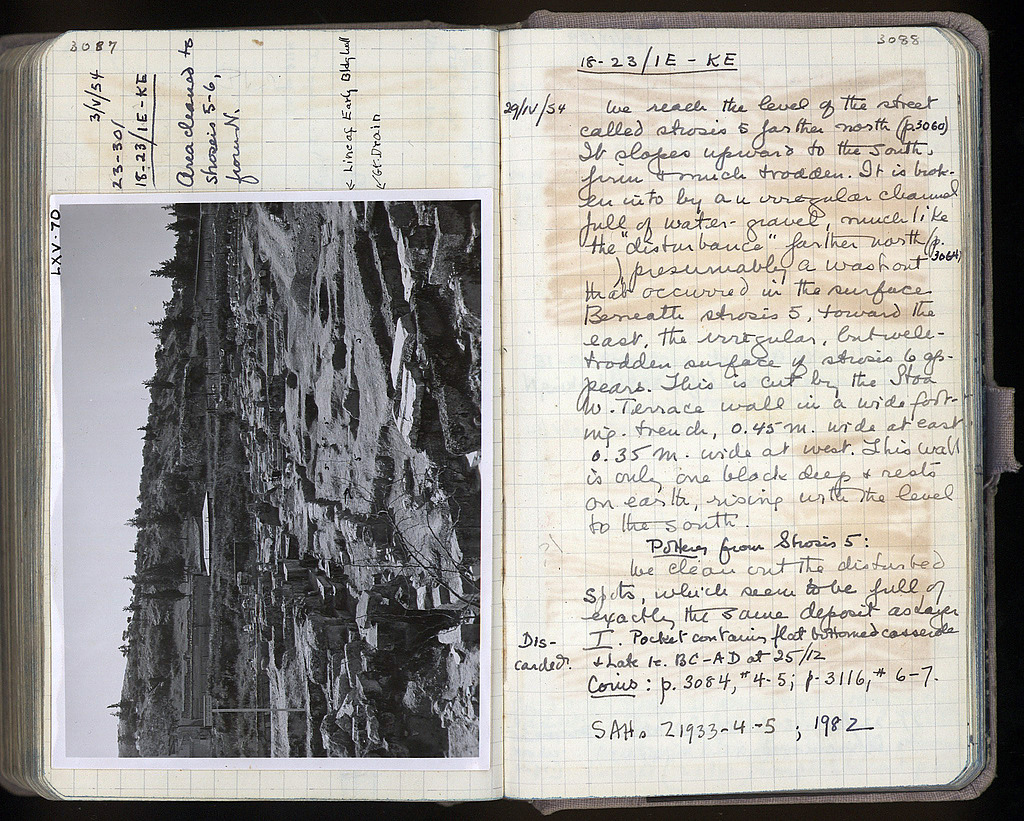 3087
3/V/54
23-30/
18-23/1E-KE
Area cleaned to
Strosis 5-6,
from N.
← Line of Early Bldg Wall
↙ Gk Drain
LXV-70
3088
18-23/1E-KE
29/IV/54
We reach the level of the street
called strosis 5 farther north (p.3060)
It slopes upward to the south,
firm & much trodden. It is brok-
en into by an irregular channel
full of water-gravel, much like
the "disturbance" farther north (p.
3064) presumably a washout
that occurred in the surface.
Beneath strosis 5, toward the
east, the irregular, but well-
trodden surface of strosis 6 ap-
pears. This is cut by the Stoa
W. Terrace wall in a wide foot-
ing trench, 0.45 m. wide at east
0.35 m. wide at west. This wall
is only one block deep & rests
on earth, rising with the level
to the south.
Pottery from Strosis 5:
We clean out the disturbed
spots, which seem to be full of
exactly the same deposit as layer
I. Pocket contains flat bottomed casserole
Dis-
carded.
& Late Ic. BC-AD at 25/12
Coins: p. 3084, #4-5; p. 3116, # 6-7.
SAHs 21933-4-5 ; 1982